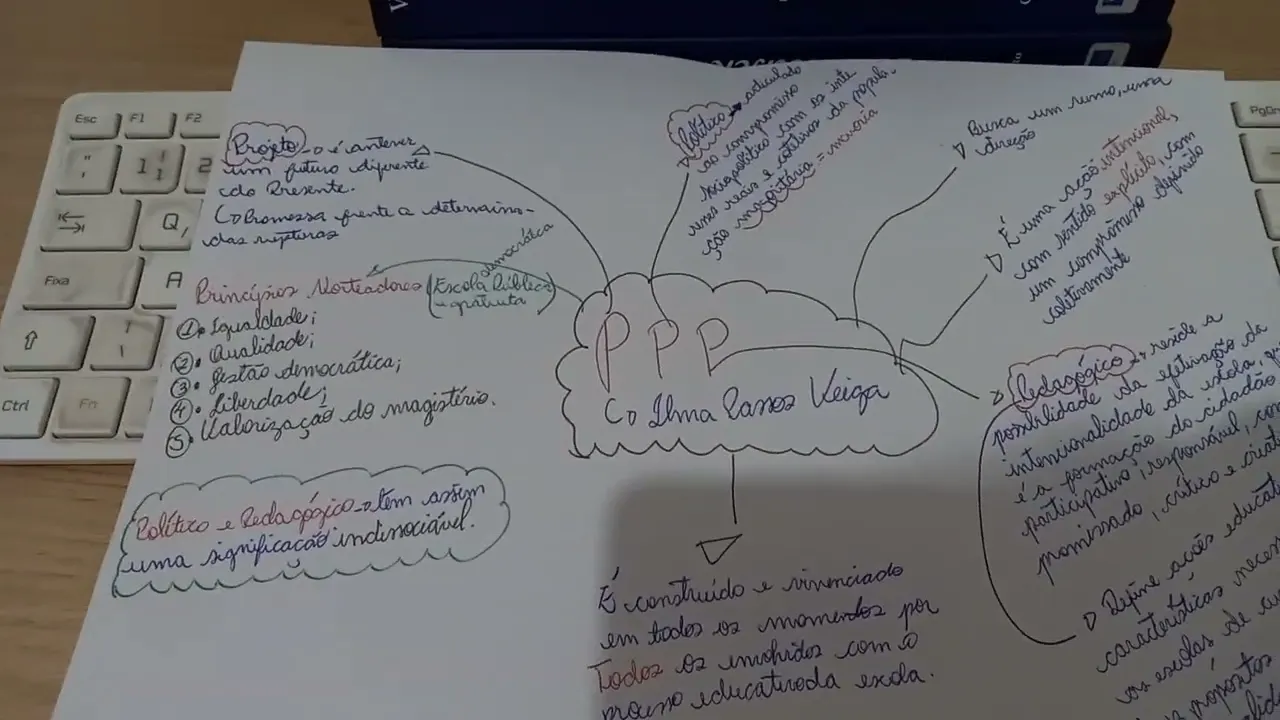 Esc
F1
F2
PgDn
Q,
Fixa
A
Ctrl
Fn
Projeto → é antever
um futuro diferente
do Presente.
↳ Promessa frente a determina-
das rupturas
Político → articulado
ao compromisso
sociopolítico com os inte
reais e coletivos da popula-
ção majoritária = maioria
Busca um rumo, uma
direção
É uma ação intencional,
com sentido explícito, com
um compromisso definido
coletivamente
Princípios Norteadores (Escola Pública
democrática
gratuita)
1. Igualdade;
2. Qualidade;
3. gestão democrática;
4. Liberdade;
5. Valorização do magistério.
PPP
↳ Ilma Passos Veiga
Pedagógico → reside a
possibilidade da efetivação da
intencionalidade da escola, que
é a formação do cidadão
participativo, responsável, com
promissado, crítico e criati
Define ações educati
características neces
as escolas de cum
propósitos
Político e Pedagógico → têm assim
uma significação indissociável.
É construído e vivenciado
em todos os momentos por
Todos os envolvidos com o
educativo da escola.